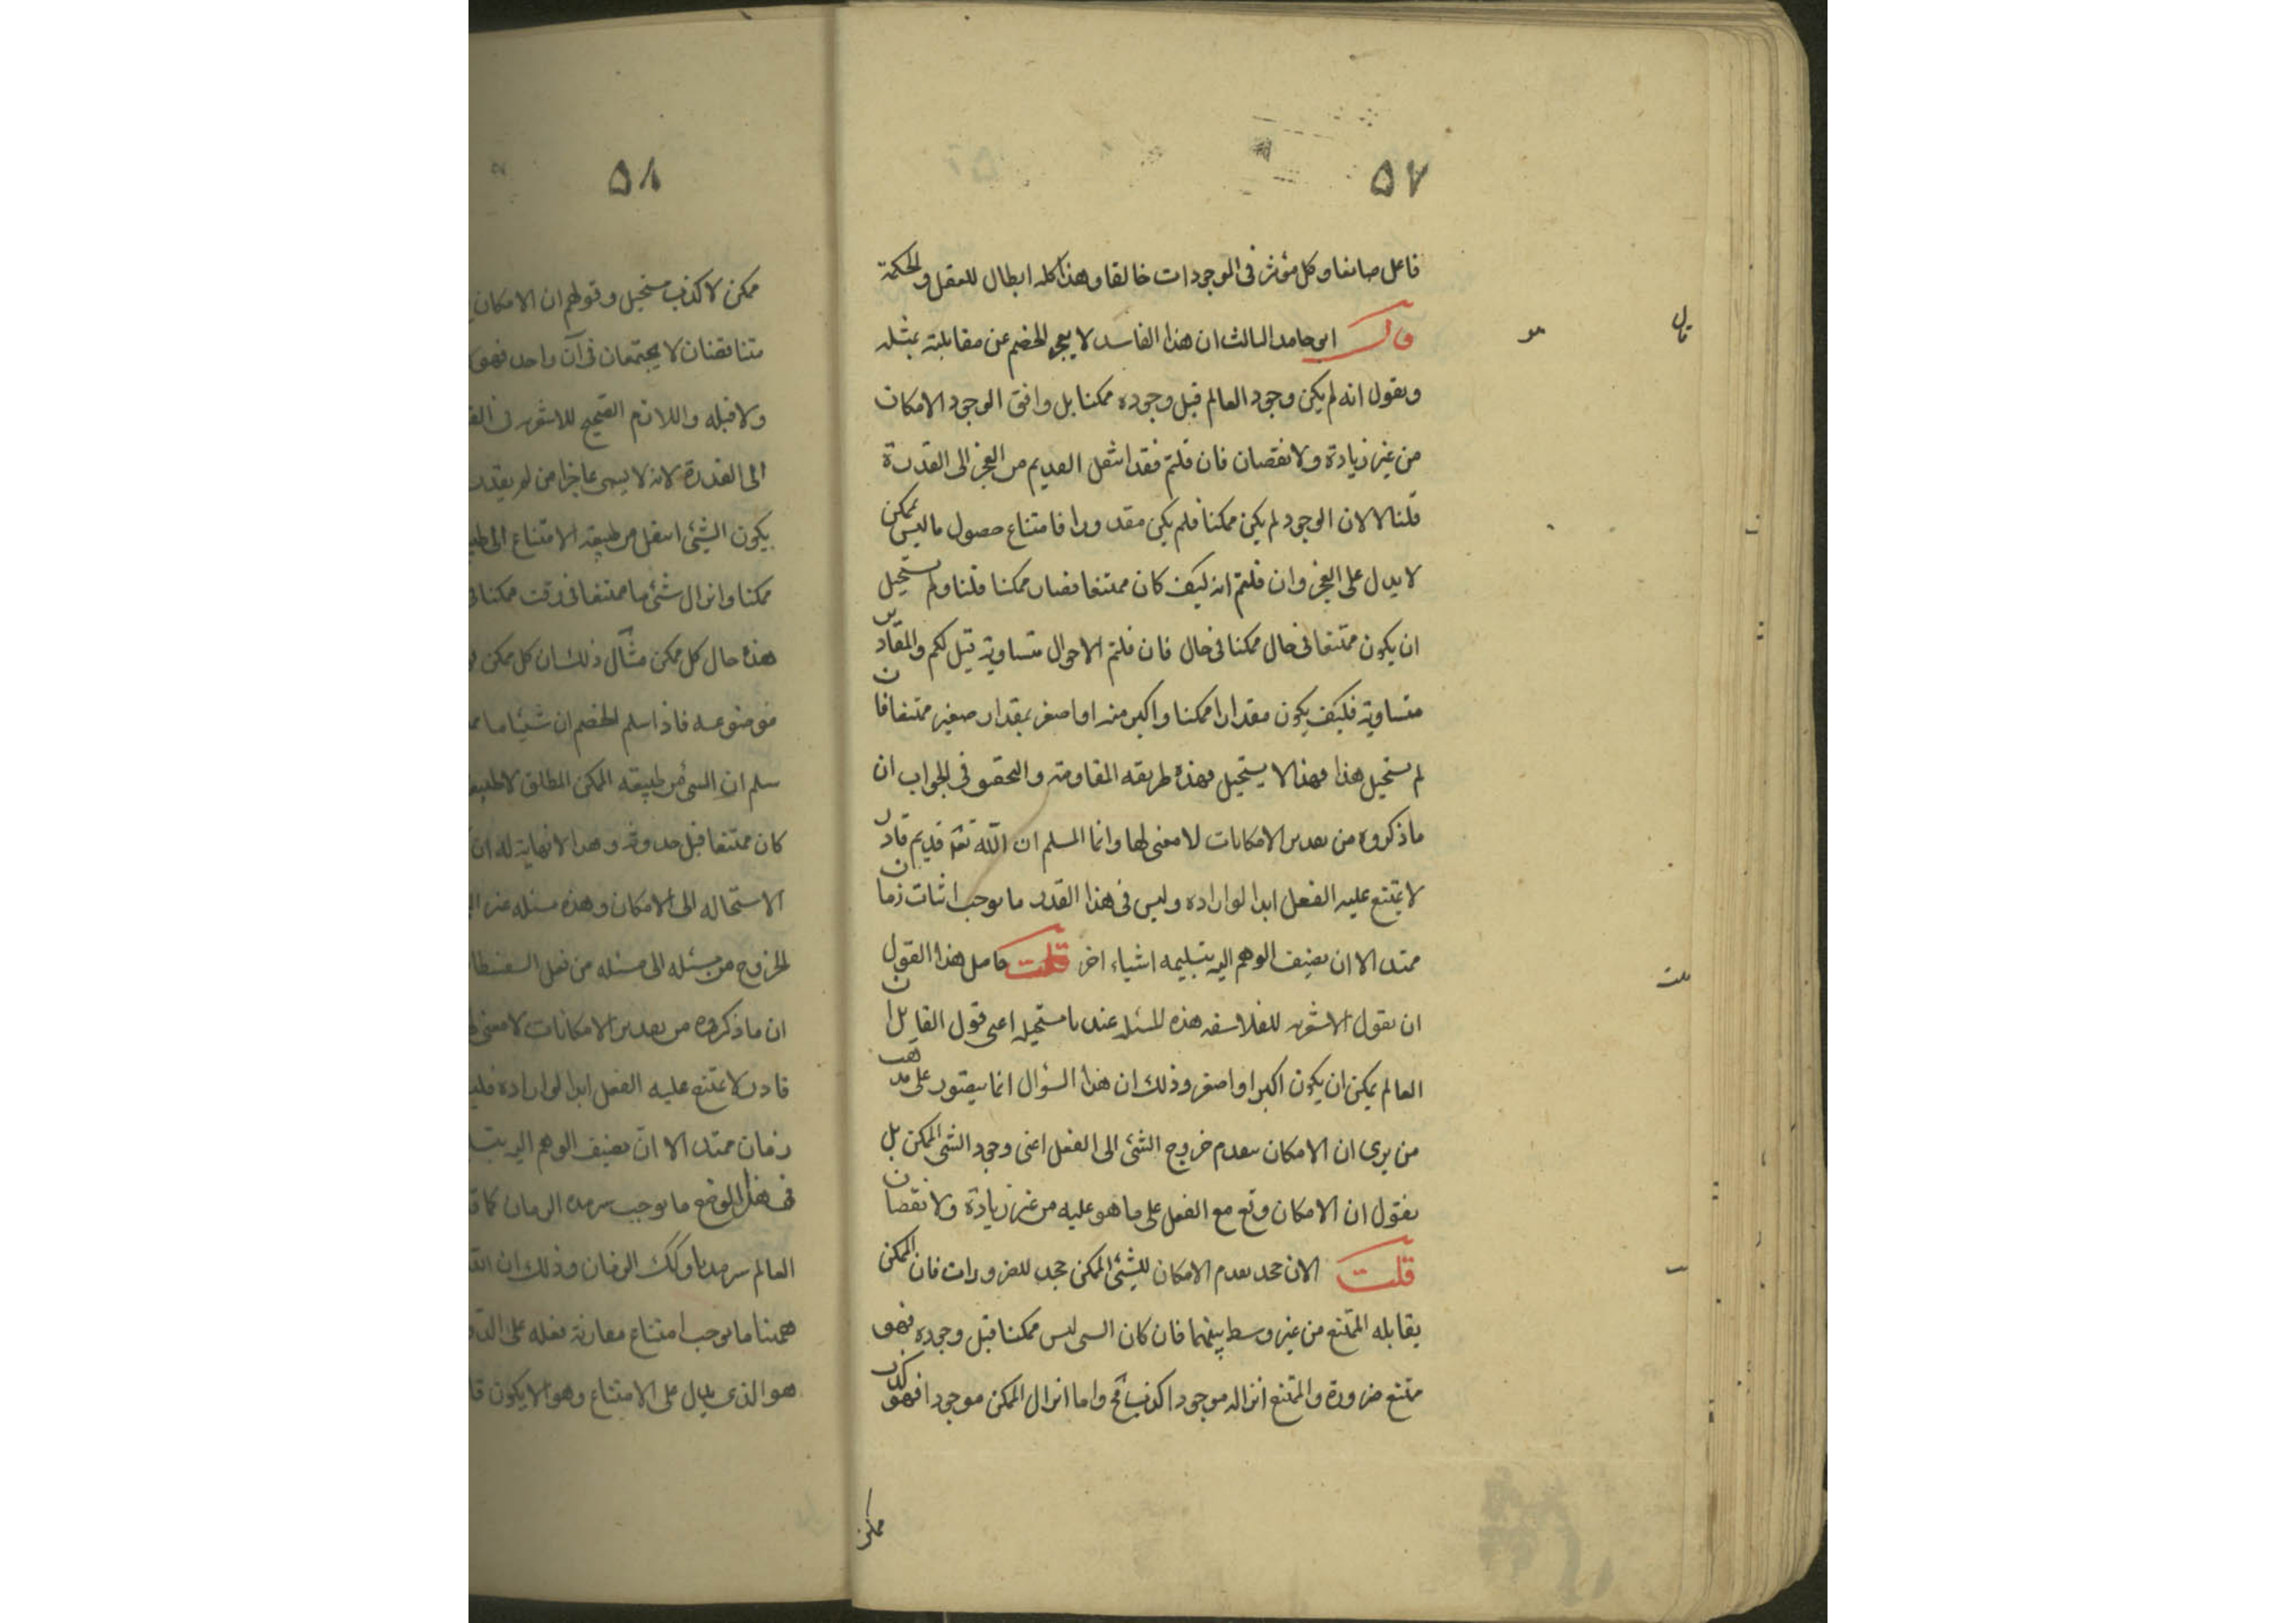 ٥٧
فاعل صانعا وكل مؤثر فى الموجودات خالقا وهذا كله ابطال للعقل والحكمة
قال ابو حامد الثالث ان هذا الفاسد لا يعجز الخصم عن مقابلته بمثله
ونقول انه لم يكن وجود العالم قبل وجوده ممكنا بل وافق الوجود الامكان
من غير زيادة ولا نقصان فان قلتم فقد انتقل القديم من العجز الى القدرة
قلنا لا لان الوجود لم يكن ممكنا فلم يكن مقدورا فامتناع حصول ما ليس بممكن
لا يدل على العجز وان قلتم انه كيف كان ممتنعا فصار ممكنا قلنا ولم يستحيل
ان يكون ممتنعا فى حال ممكنا فى حال فان قلتم الاحوال متساوية قيل لكم والمقادير
متساوية فكيف يكون مقدارا ممكنا واكبر منه او اصغر بمقدار صغير ممتنعا فان
لم يستحيل هذا فهذا لا يستحيل فهذه طريقه المقاومة والتحقيق فى الجواب ان
ما ذكروه من تقدير الامكانات لا معنى لها وانما المسلم ان الله تعه قديم قادر
لا يمتنع عليه الفعل ابدا لو اراده وليس فى هذا القدر ما يوجب اثبات زمان
ممتد الا ان يضيف الوهم اليه بتلبيسه اشياء اخر قلت حاصل هذا القول
ان يقول الاشعريه للفلاسفه هذه المسئله عندنا مستحيله اعنى قول القايل ان
العالم يمكن ان يكون اكبر او اصغر وذلك ان هذا السؤال انما يتصور على مذهب
من يرى ان الامكان يتقدم خروج الشئ الى الفعل اعنى وجود الشئ الممكن بل
نقول ان الامكان وقع مع الفعل على ما هو عليه من غير زيادة ولا نقصان
قلت الا ان جحد تقدم الامكان للشئ الممكن جحد للضرورات فان الممكن
يقابله الممتنع من غير وسط بينهما فان كان الشى ليس ممكنا قبل وجوده فهو
ممتنع ضرورة والممتنع انزاله موجودا كذب مح واما انزال الممكن موجودا فهو كذب
ممكن
قال
قلت
٥٨
ممكن لا كذب مستحيل وقولهم ان الامكان
متناقضان لا يجتمعان فى آن واحد فهو
ولا قبله واللازم الصحيح للاشعريه فى
الى القدرة لانه لا يسمى عاجزا من لم يقدر
يكون الشئ انتقل من طبيعة الامتناع الى
ممكنا وانزال شئ ما ممتنعا فى وقت ممكنا
هذه حال كل ممكن مثال ذلك ان كل ممكن
موضوعه فاذا سلم الخصم ان شيئا ما
سلم ان الشئ من طبيعه الممكن المطلق لا
كان ممتنعا قبل حدوثه وهذا لا نهاية له ان
الاستحاله الى الامكان وهذه مسئله غير
الخروج من مسئله الى مسئله من فعل
ان ما ذكروه من تقدير الامكانات لا معنى
قادر لا يمتنع عليه الفعل ابدا لو اراده
زمان ممتد الا ان يضيف الوهم اليه
فى هذا الموضع ما يوجب سرمدية الزمان كما
العالم سرمديا وكك الزمان وذلك ان
ههنا ما يوجب امتناع مقارنة فعله على
هو الذى يدل على الامتناع وهو لا يكون